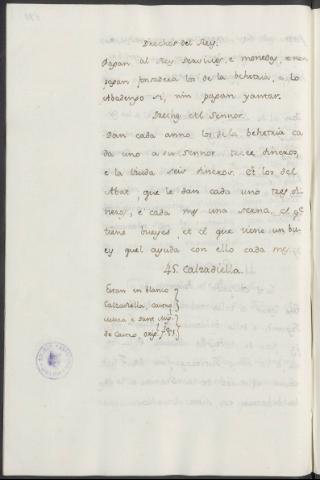 Drechos del Rey.
Pagan al Rey servicios, e monedas, e non
pagan fonsadera los de la behetria, e lo
Abadengo si, nin pagan yantar.
Drechos del Sennor
Dan cada anno los de la behetria ca
da uno a su Sennor trece dineros,
e la biuda seis dineros. Et los del
Abat, que le dan cada uno tres di
neros, e cada mes una serna. el q.e
tiene bueyes, et el que tiene un bu
ey quel ayuda con ello cada mes.
45. Calzadiella
Estan in blanco
Calzadiella,
e Sant Mig.
de Cueza,